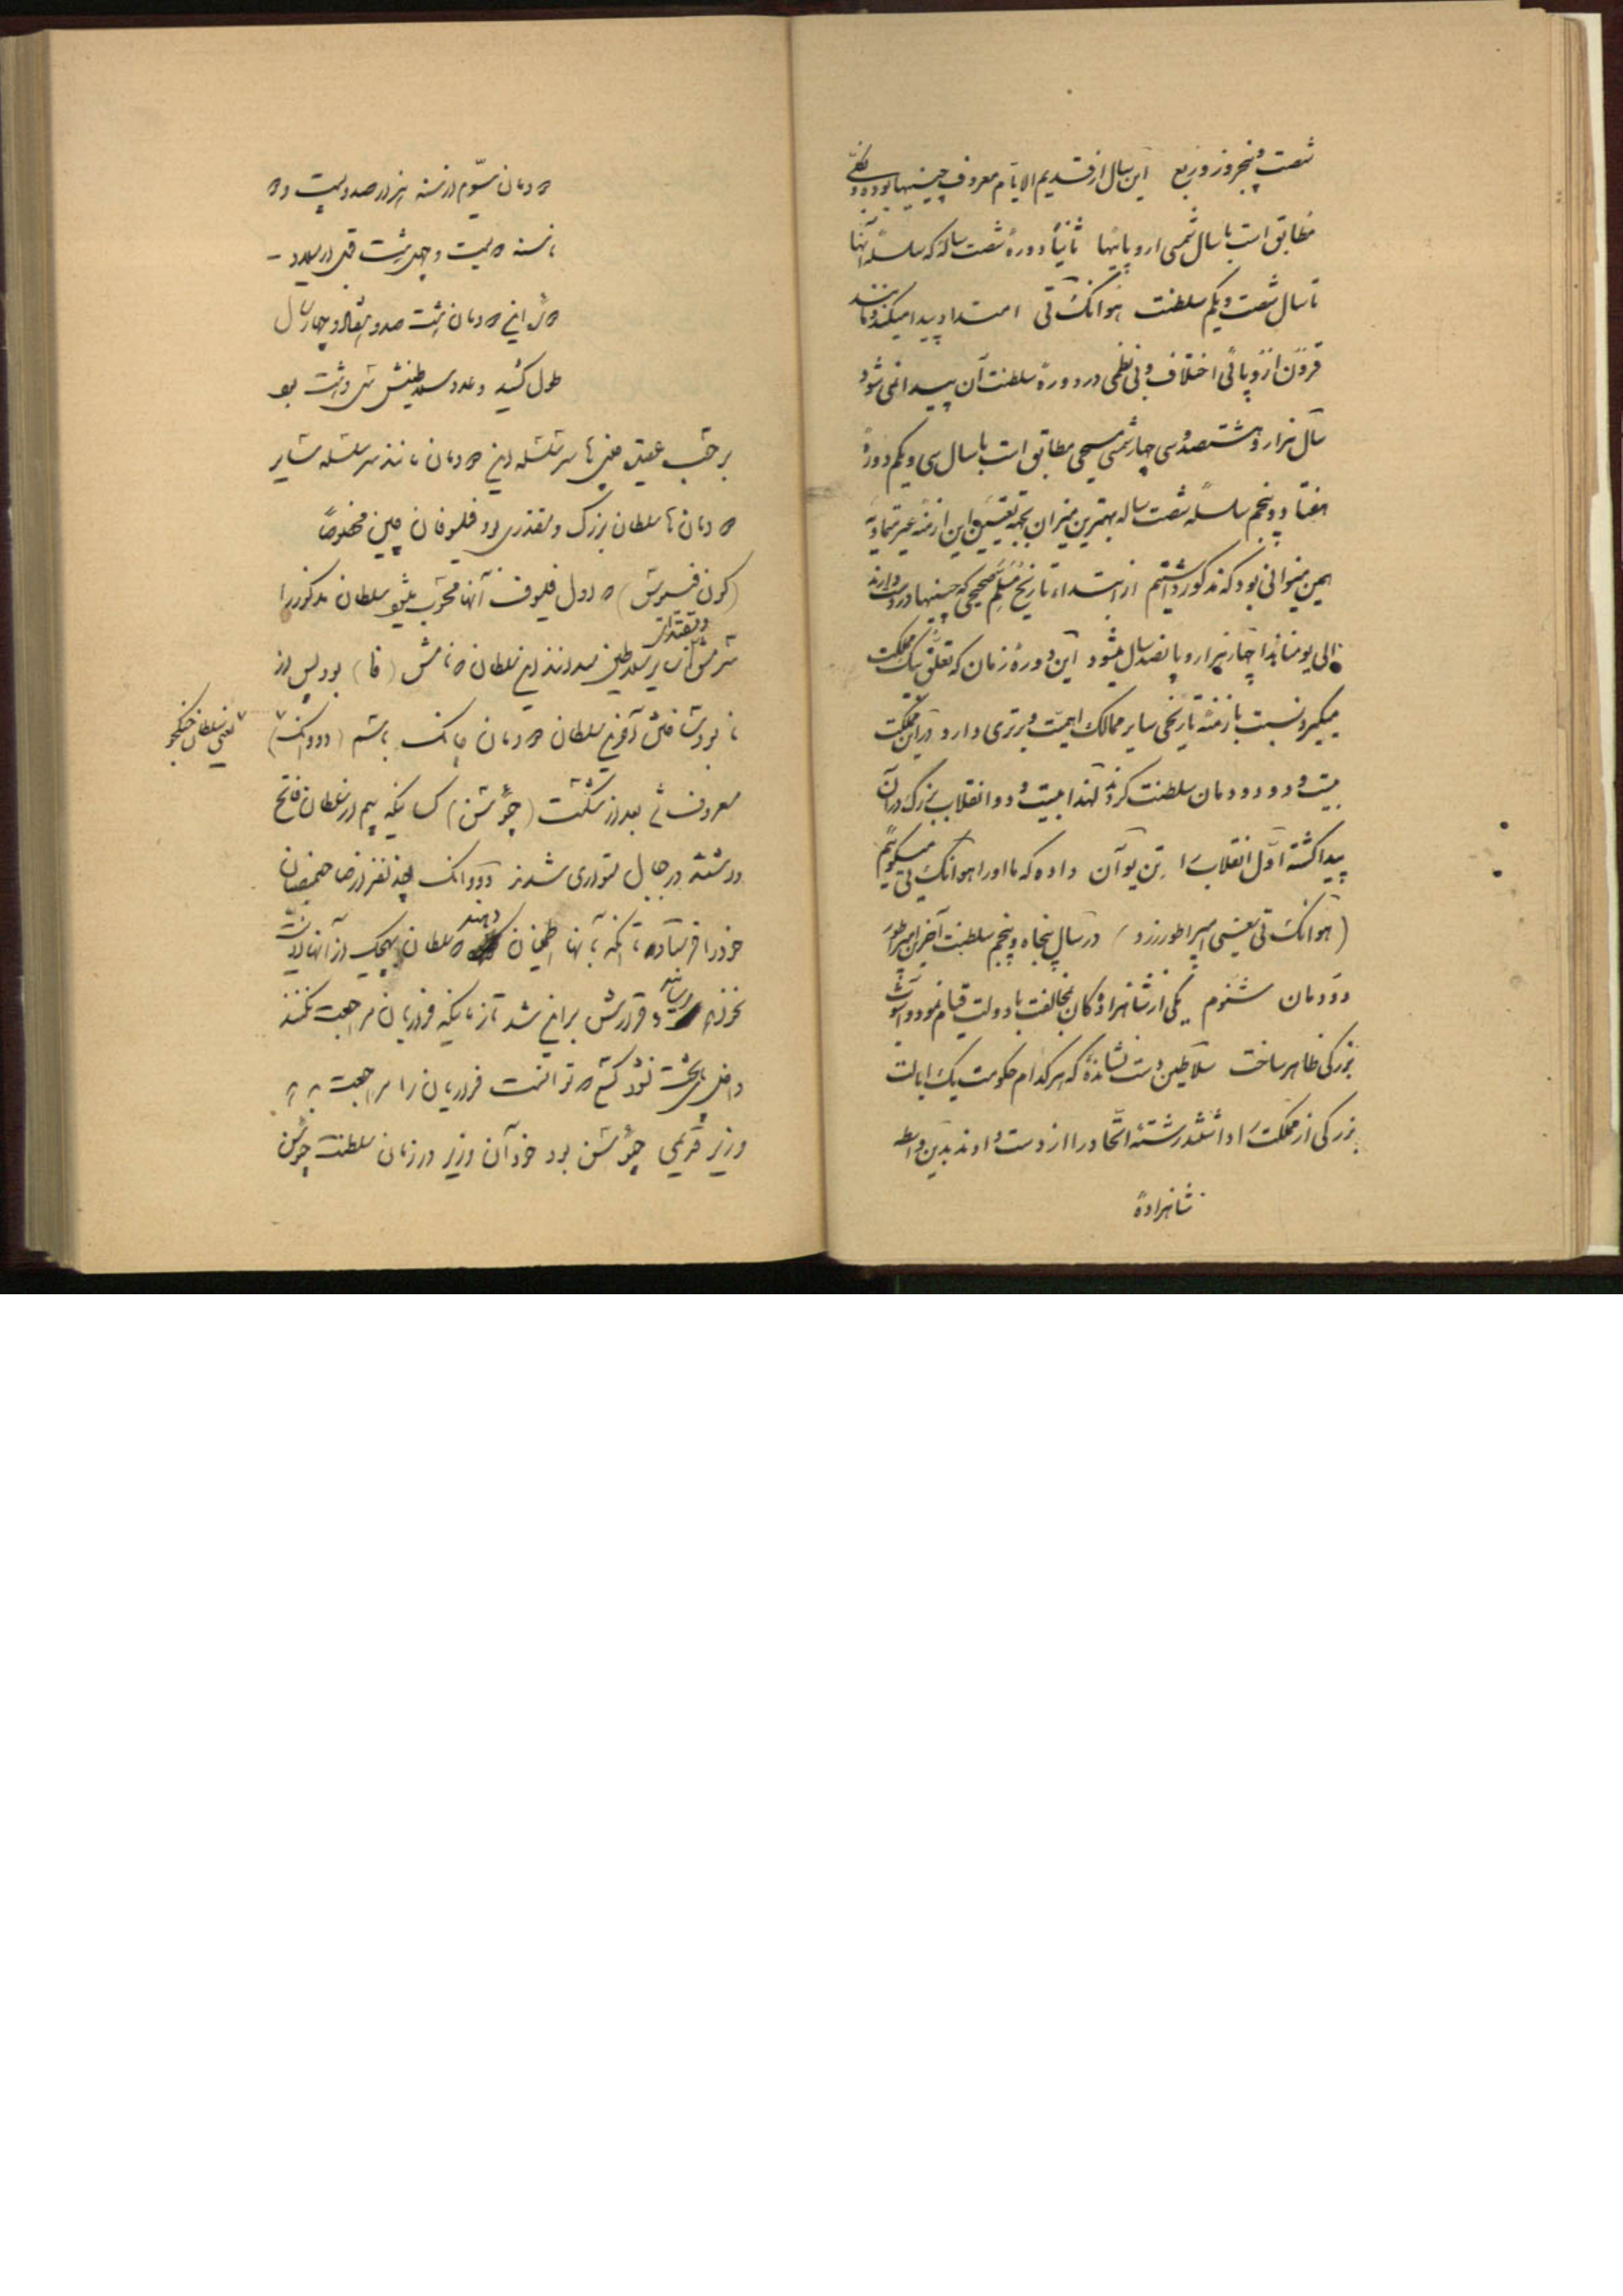 شصت و پنجروز و ربع این سال از قدیم الایام معروف چینیها بوده و
مطابق است با سال شمسی اروپائیها ثانیاً دورهٔ شصت ساله که سلسله آنها
تا سال شصت و یکم سلطنت هوانگ تی امتداد پیدا میکند و مانند
قرون اروپائی اختلاف و بی نظمی در دورهٔ سلطنت آن پیدا نمی شود
سال هزار و هشتصد و سی چهار شمسی مسیحی مطابق است با سال سی و یکم دورهٔ
هفتاد و پنجم سلسله شصت ساله بهترین میزان بجهة تعیین این ازمنه غیر متمادیه
همین میزانی بود که مذکور داشتیم از ابتداء تاریخ مسلم صحیحی که چینیها در دست دارند
الی یومنا هذا چهار هزار و پانصد سال میشود این دورهٔ زمان که تعلق بیک مملکت
میگیرد نسبت بازمنهٔ تاریخی سایر ممالک اهمیت و برتری دارد در این مملکت
بیست و دو دودمان سلطنت کرده‌اند لهذا بیست و دو انقلاب بزرگ در آن
پیدا گشته اول انقلاب را تن یوآن داده که ما او را هوانگ تی میگوئیم
(هوانگ تی یعنی امپراطور زرد) در سال پنجاه و پنجم سلطنت آخرین امپراطور
دودمان ششم یکی از شاهزادگان بمخالفت با دولت قیام نمود و آشوب
بزرگی ظاهر ساخت سلاطین دست نشانده که هر کدام حکومت یک ایالت
بزرگی از مملکت را داشتند رشتهٔ اتحاد را از دست دادند بدین واسطه
شاهزادهٔ
دودمان سیّوم از سنه هزار و صد و بیست و دو
تا سنه دویست و چهل و هشت قبل از میلاد -
این دودمان هشت صد و هفتاد و چهار سال
طول کشید و عدد سلاطینش سی و هشت بود
بر حسب عقیده چینی‌ها سر سلسله این دودمان مانند سر سلسله سایر
دودمان‌ها سلطان بزرگ و مقتدری بود فلیسوفان چین مخصوصاً
(کون فسیوش) که اول فلیسوف آنها محسوب میشود سلطان مذکور را
و مقتدای
سرمشق سایر سلاطین میدانند این سلطان که نامش (فا) بود پس از
نابود ساختن آخرین سلطان دودمان چانک باسم (ووانک)
یعنی سلطان جنگجو
معروف شد بعد از شکست (چوشن) کسانیکه بیم از سلطان فاتح
داشتند در جبال متواری شدند ووانک چند نفر از صاحبمنصبان
خود را فرستاده تا آنکه بآنها اطمینان دهند که سلطان بهیچیک از آنها اذیت
نخواهد رسانید و قرارش بر این شد تا زمانیکه فراریان مراجعت نکنند
داخل پایتخت نشود کسی که توانست فراریان را مراجعت بدهد
وزیر قدیمی چوشن بود خود آن وزیر در زمان سلطنت چوشن